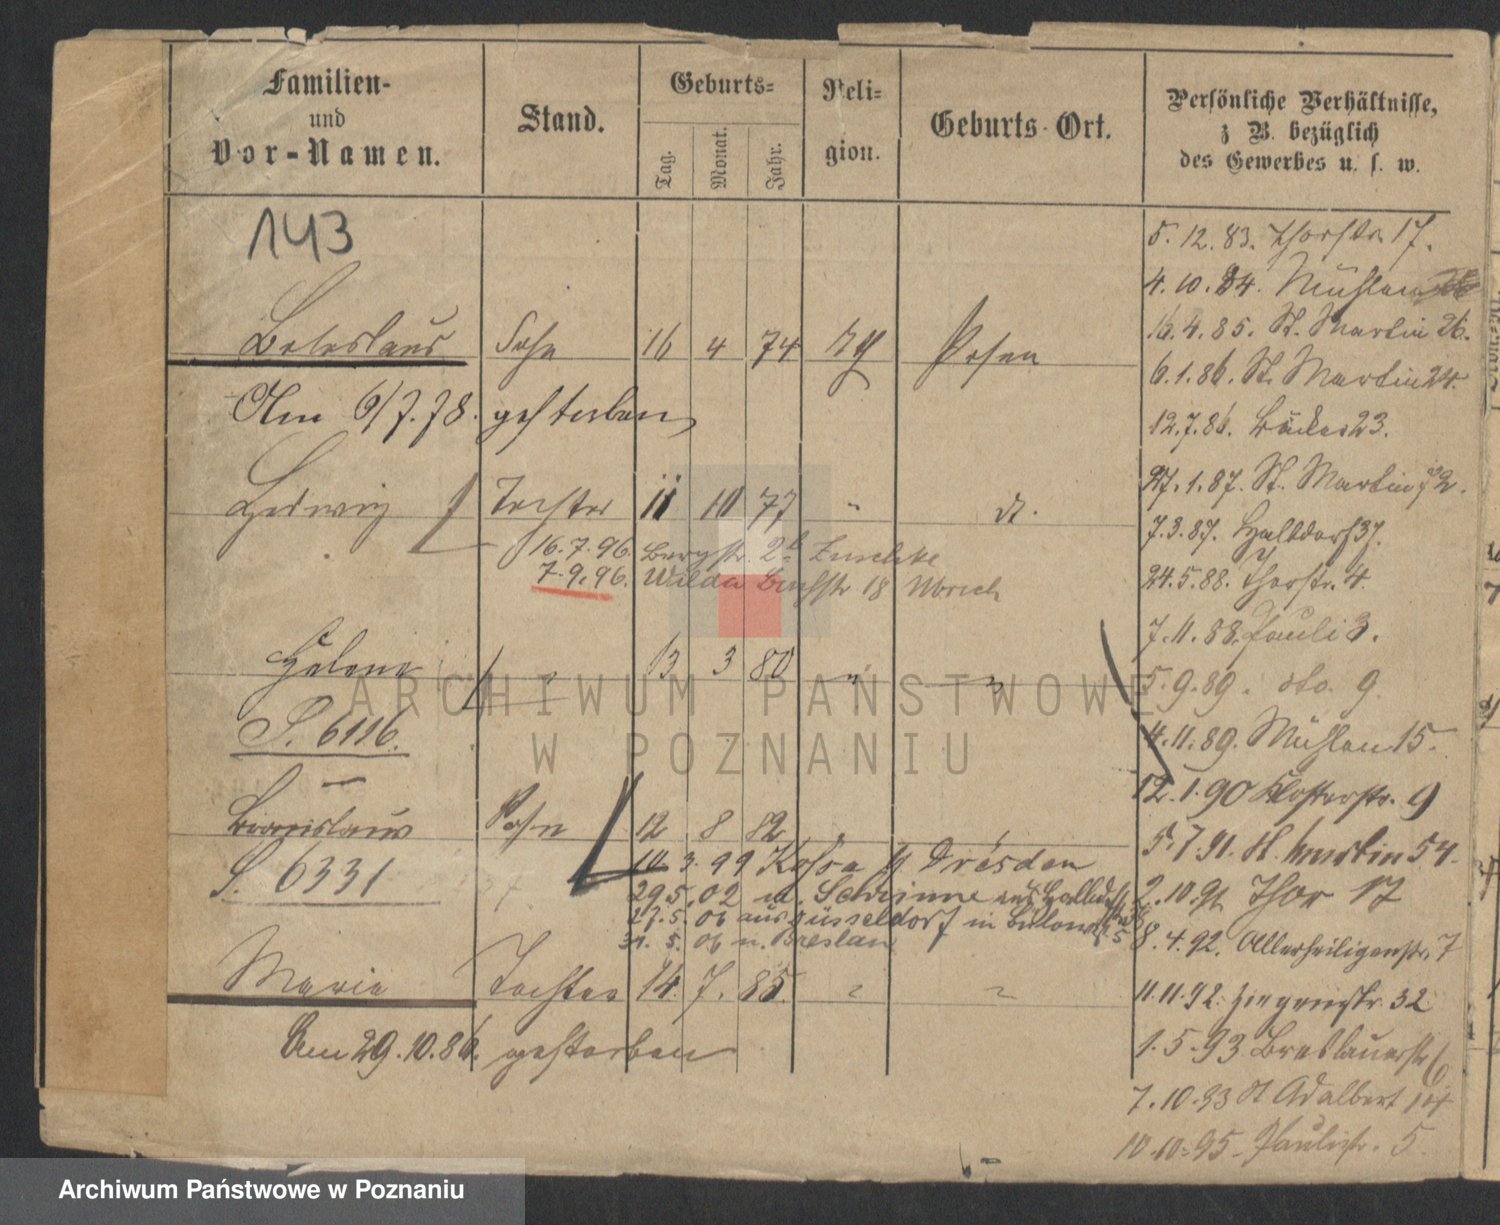 Familien-
und
Vor-Namen.
Stand.
Geburts-
Tag.
Monat.
Jahr.
Reli-
gion.
Geburts-Ort.
Persönliche Verhältnisse,
z B. bezüglich
des Gewerbes u. s. w.
143
Boleslaus Sohn 16 4 74 Posen
Am 6/7.78. gestorben
Hedwig Tochter 11 10 77 " dt.
16.7.96. Bergstr. 2b
7.9.96. Wilda 18
Helene " 13 3 80 " "
S. 6116.
Bronislaus Sohn 12 8 82
S. 6331
10 3. 99 Dresden
29.5.02 n. Schrimm aus
27.5.06 aus Düsseldorf in
31.5.06 n. Breslau
Maria Tochter 14. 7. 85. " "
Am 29.10.86. gestorben
5.12.83. Thorstr. 17.
4.10.84. Mühlen
16.4.85. St. Martin 26.
6.1.86. St. Martin 24.
12.7.86. Bäcker 23.
27.1.87. St. Martin 72.
7.3.87. Halbdorf 37.
24.5.88. Thorstr. 4.
7.11.88. Pauli 3.
5.9.89. dto. 9.
4.11.89. Mühlen 15.
12.1.90 Klosterstr. 9
5.7.91. St Martin 54.
2.10.91 Thor 17
8.4.92. Allerheiligenstr. 7
11.11.92. Ziegenstr. 32
1.5.93 Breslauerstr 6
7.10.93 St Adalbert
10.10.95. Paulistr. 5.
ARCHIWUM PAŃSTWOWE
W POZNANIU
Archiwum Państwowe w Poznaniu